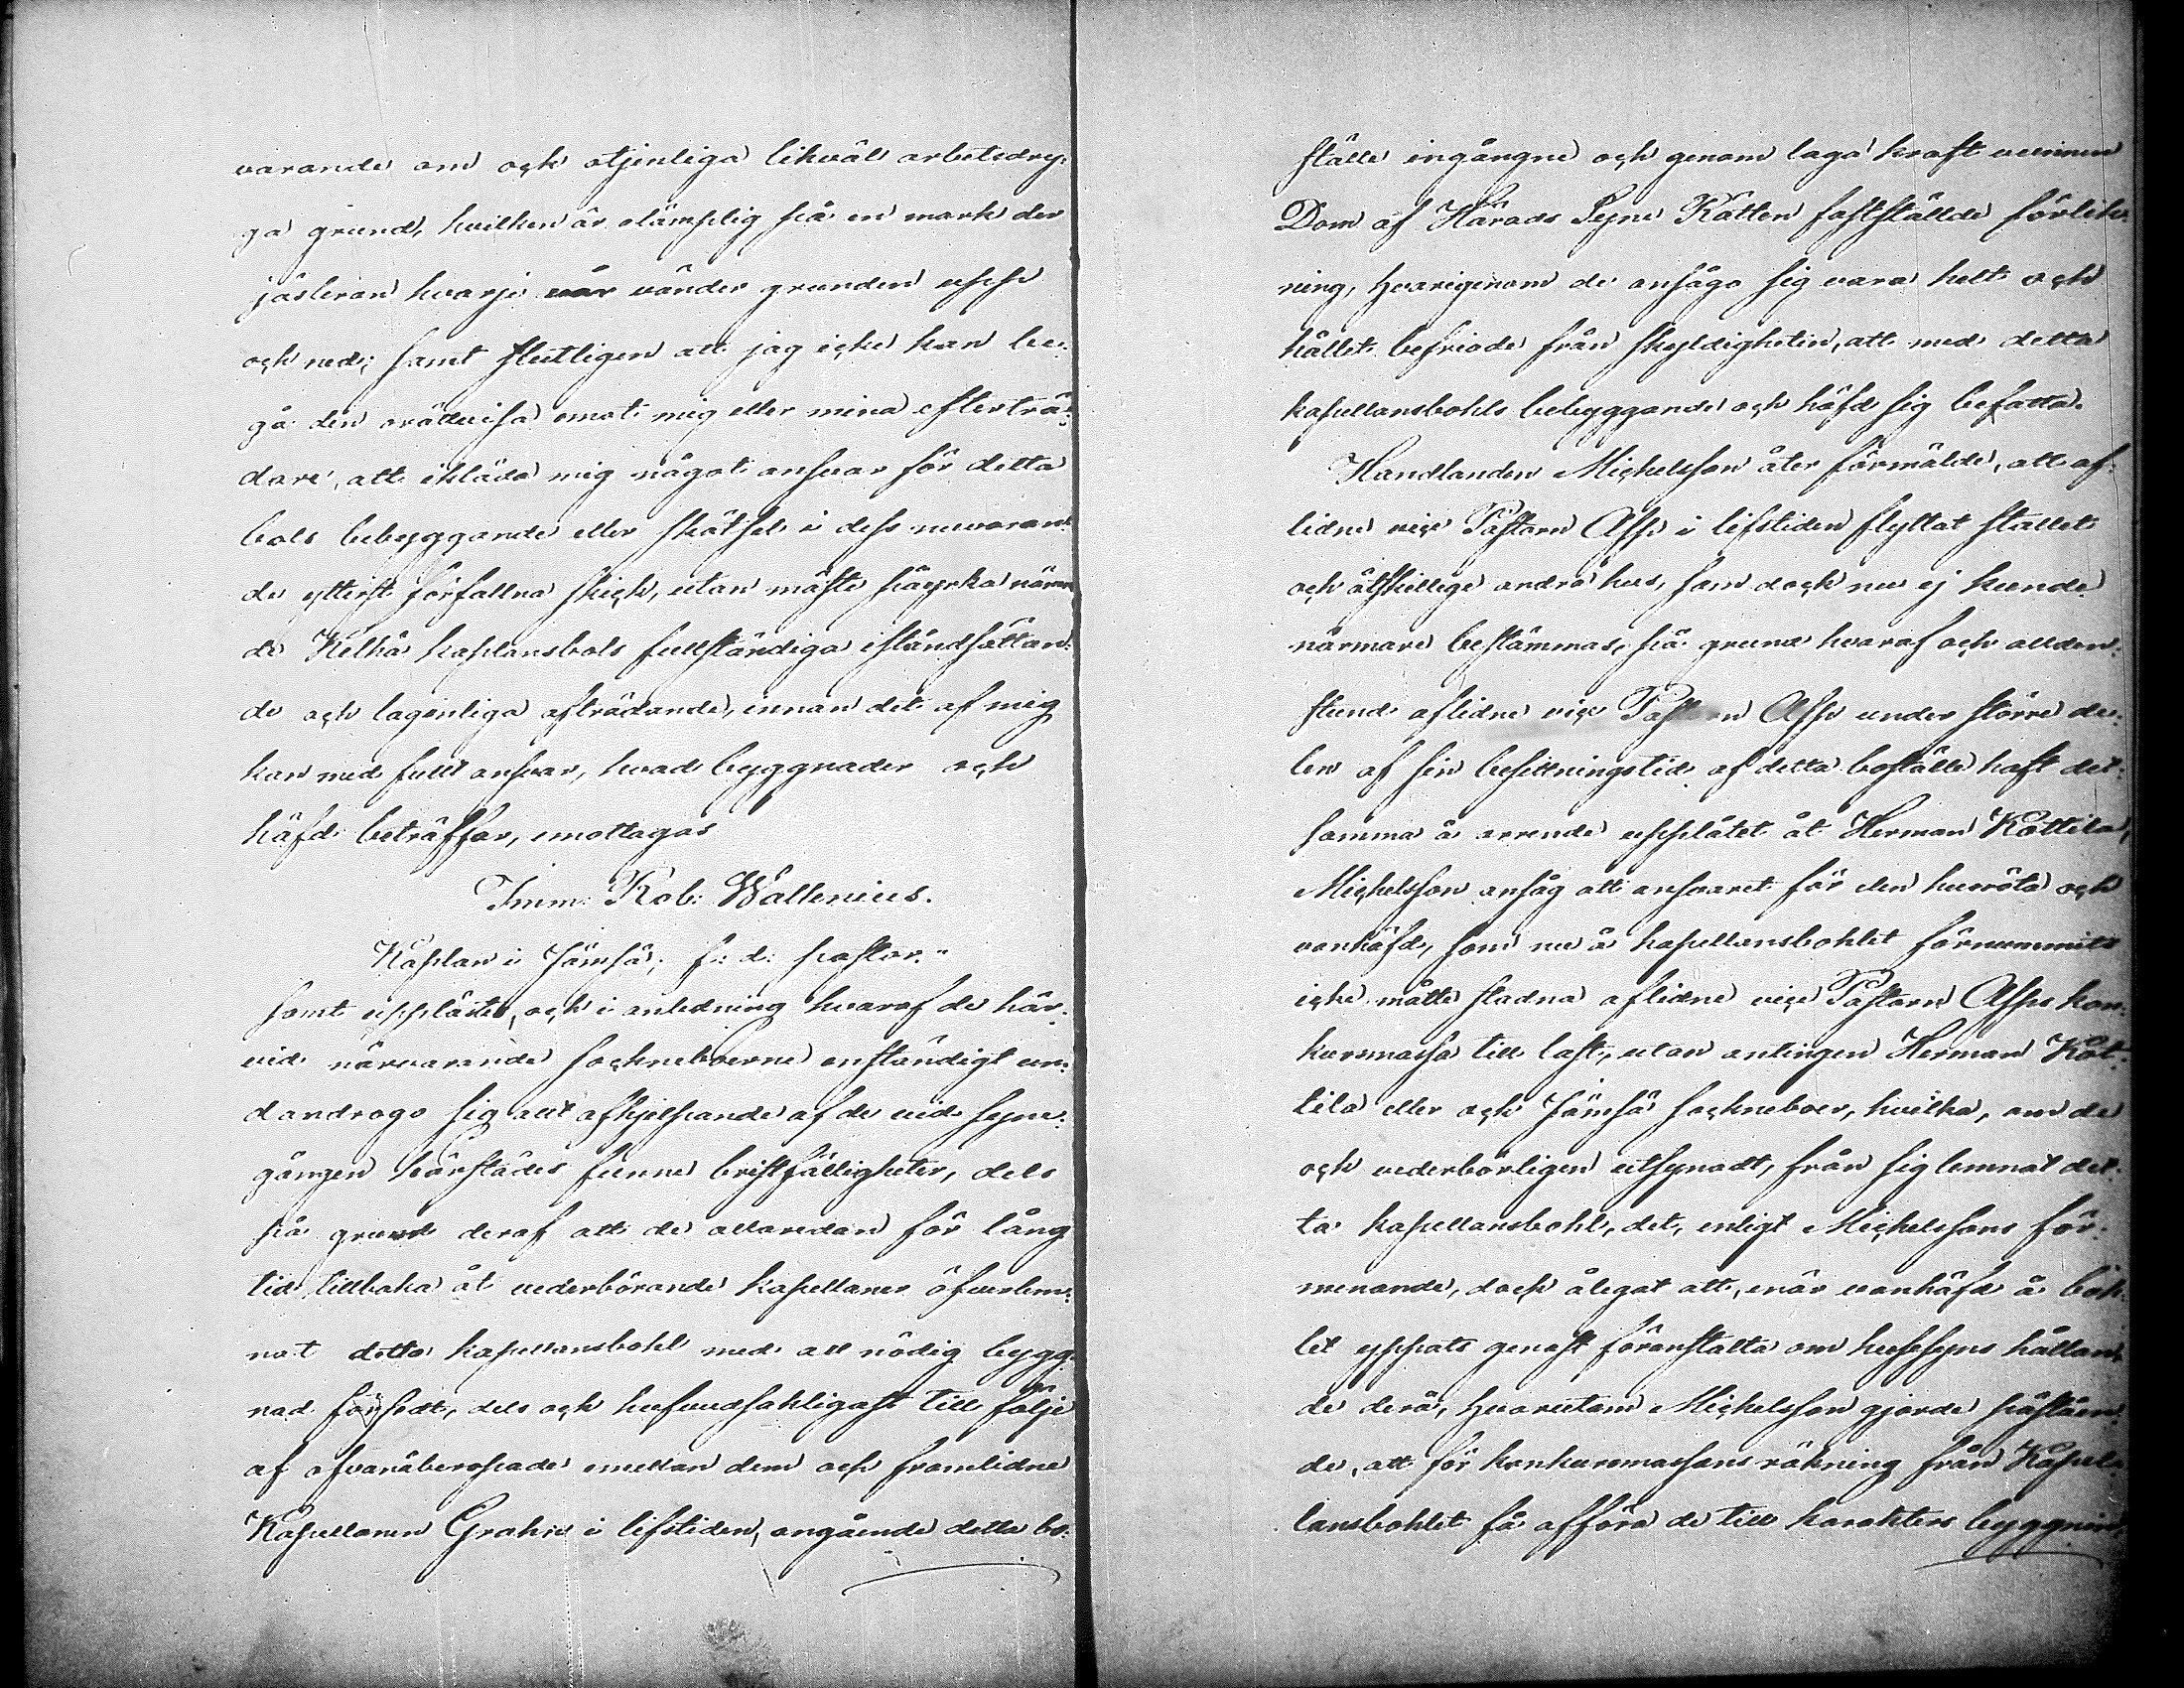 varande om ock otjenliga likväl arbetsdry-
ga grund, hvilken är olämplig på en mark der
jäsleran hvarje vår vänder grunden upp
och ned; samt slutligen att jag icke kan be-
gå den orättvisa emot mig eller mina efterträ-
dare, att ikläda mig något ansvar för detta
bols bebyggande eller skötsel i dess nuvaran-
de ytterst förfallna skick, utan måste påyrka nämn
de Kelhä kaplansbols fullständiga iståndsättan-
de och lagenliga afträdande, innan det af mig
kan med fullt ansvar, hvad byggnader och
häfd beträffar, emottagas
Imm: Rob: Wallenius.
Kaplan i Jämsä; f: d: pastor."
samt upplästes, och i anledning hvaraf de här-
vid närvarande sockneboerne enständigt un-
dandrogo sig allt afhjelpande af de vid syne-
gången härstädes funne bristfälligheter, dels
på grund deraf att de allaredan för lång
tid tillbaka åt vederbörande kapellaner öfverlem-
nat detta kapellansbohl med all nödig bygg-
nad försedt, dels och hufvudsakligast till följe
af ofvanåberopade emellan dem och framlidne
Kapellanen Grahn i lifstiden, angående detta bo-
ställe ingångne och genom laga kraft vunnen
Dom af Härads Syne Rätten faststälde förlik-
ning, hvarigenom de ansågo sig vara helt och
hållet befriade från skyldigheten, att med detta
kapellansbohls bebyggande och häfd sig befatta.
Handlanden Michelsson åter förmälde, att af-
lidne vice Pastorn Asp i lifstiden flyttat stallet
och åtskillige andra hus, som dock nu ej kunde
närmare bestämmas, på grund hvaraf och allden-
stund aflidne vice Pastorn Asp under större de-
len af sin besittningstid af detta boställe haft det-
samma å arrende upplåtet åt Herman Kottila,
Michelsson ansåg att ansvaret för den husröta och
vanhäfd, som nu å kapellansbohlet förnummits
icke måtte stadna aflidne vice Pastorn Asps kon-
kursmassa till last, utan antingen Herman Kot-
tila eller och Jämsä sockneboer, hvilka, om de
och vederbörligen utsynadt, från sig lemnat det-
ta kapellansbohl, det, enligt Michelssons för-
menande, dock ålegat att, enär vanhäfd å boh-
let yppats genast föranstalta om hussyns hållan-
de derå, hvarutom Michelsson gjorde påståen-
de, att för konkursmassans räkning från Kapel-
lansbohlet få afföra de till karakters byggnin-